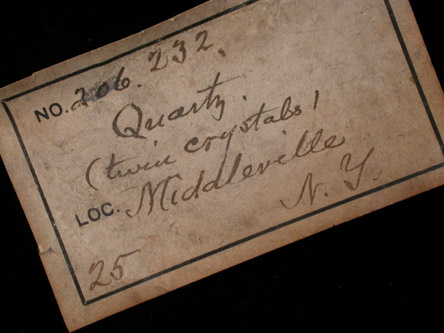 NO. 206.232.
Quartz.
(twin crystals)
LOC. Middleville
N. Y.
25